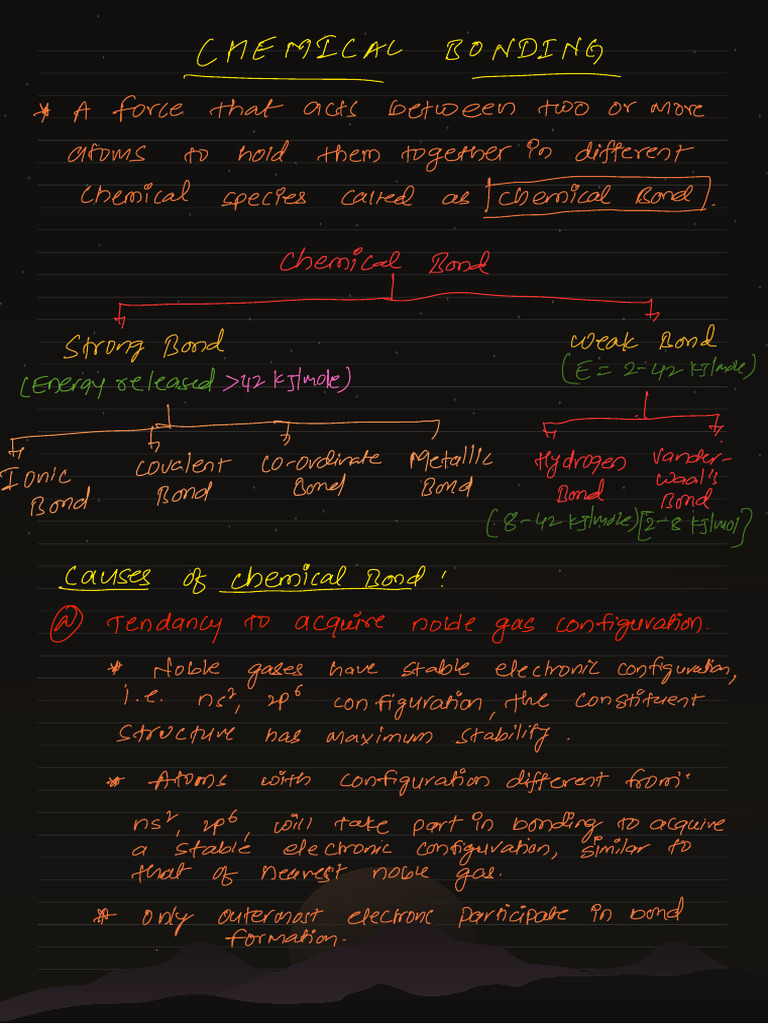 CHEMICAL BONDING
* A force that acts between two or more
atoms to hold them together in different
chemical species called as chemical Bond.
Chemical Bond
Strong Bond
Weak Bond
(Energy released >42 kJ/mole)
(E = 2-42 kJ/mole)
Ionic Bond
Covalent Bond
Co-ordinate Bond
Metallic Bond
Hydrogen Bond
Vander-waal's Bond
(8-42 kJ/mole) [2-8 kJ/mol]
Causes of chemical Bond:
@ Tendancy to acquire noble gas configuration.
* Noble gases have stable electronic configuration,
i.e. ns², np⁶ configuration, the constituent
structure has maximum stability.
* Atoms with configuration different from
ns², np⁶, will take part in bonding to acquire
a stable electronic configuration, similar to
that of nearest noble gas.
* Only outermost electronc participate in bond
formation.